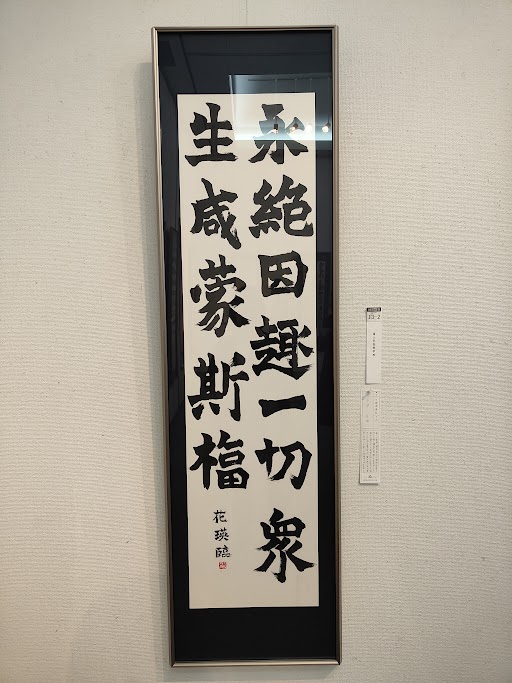 永絶因趣一切衆
生咸蒙斯福
花瑛臨